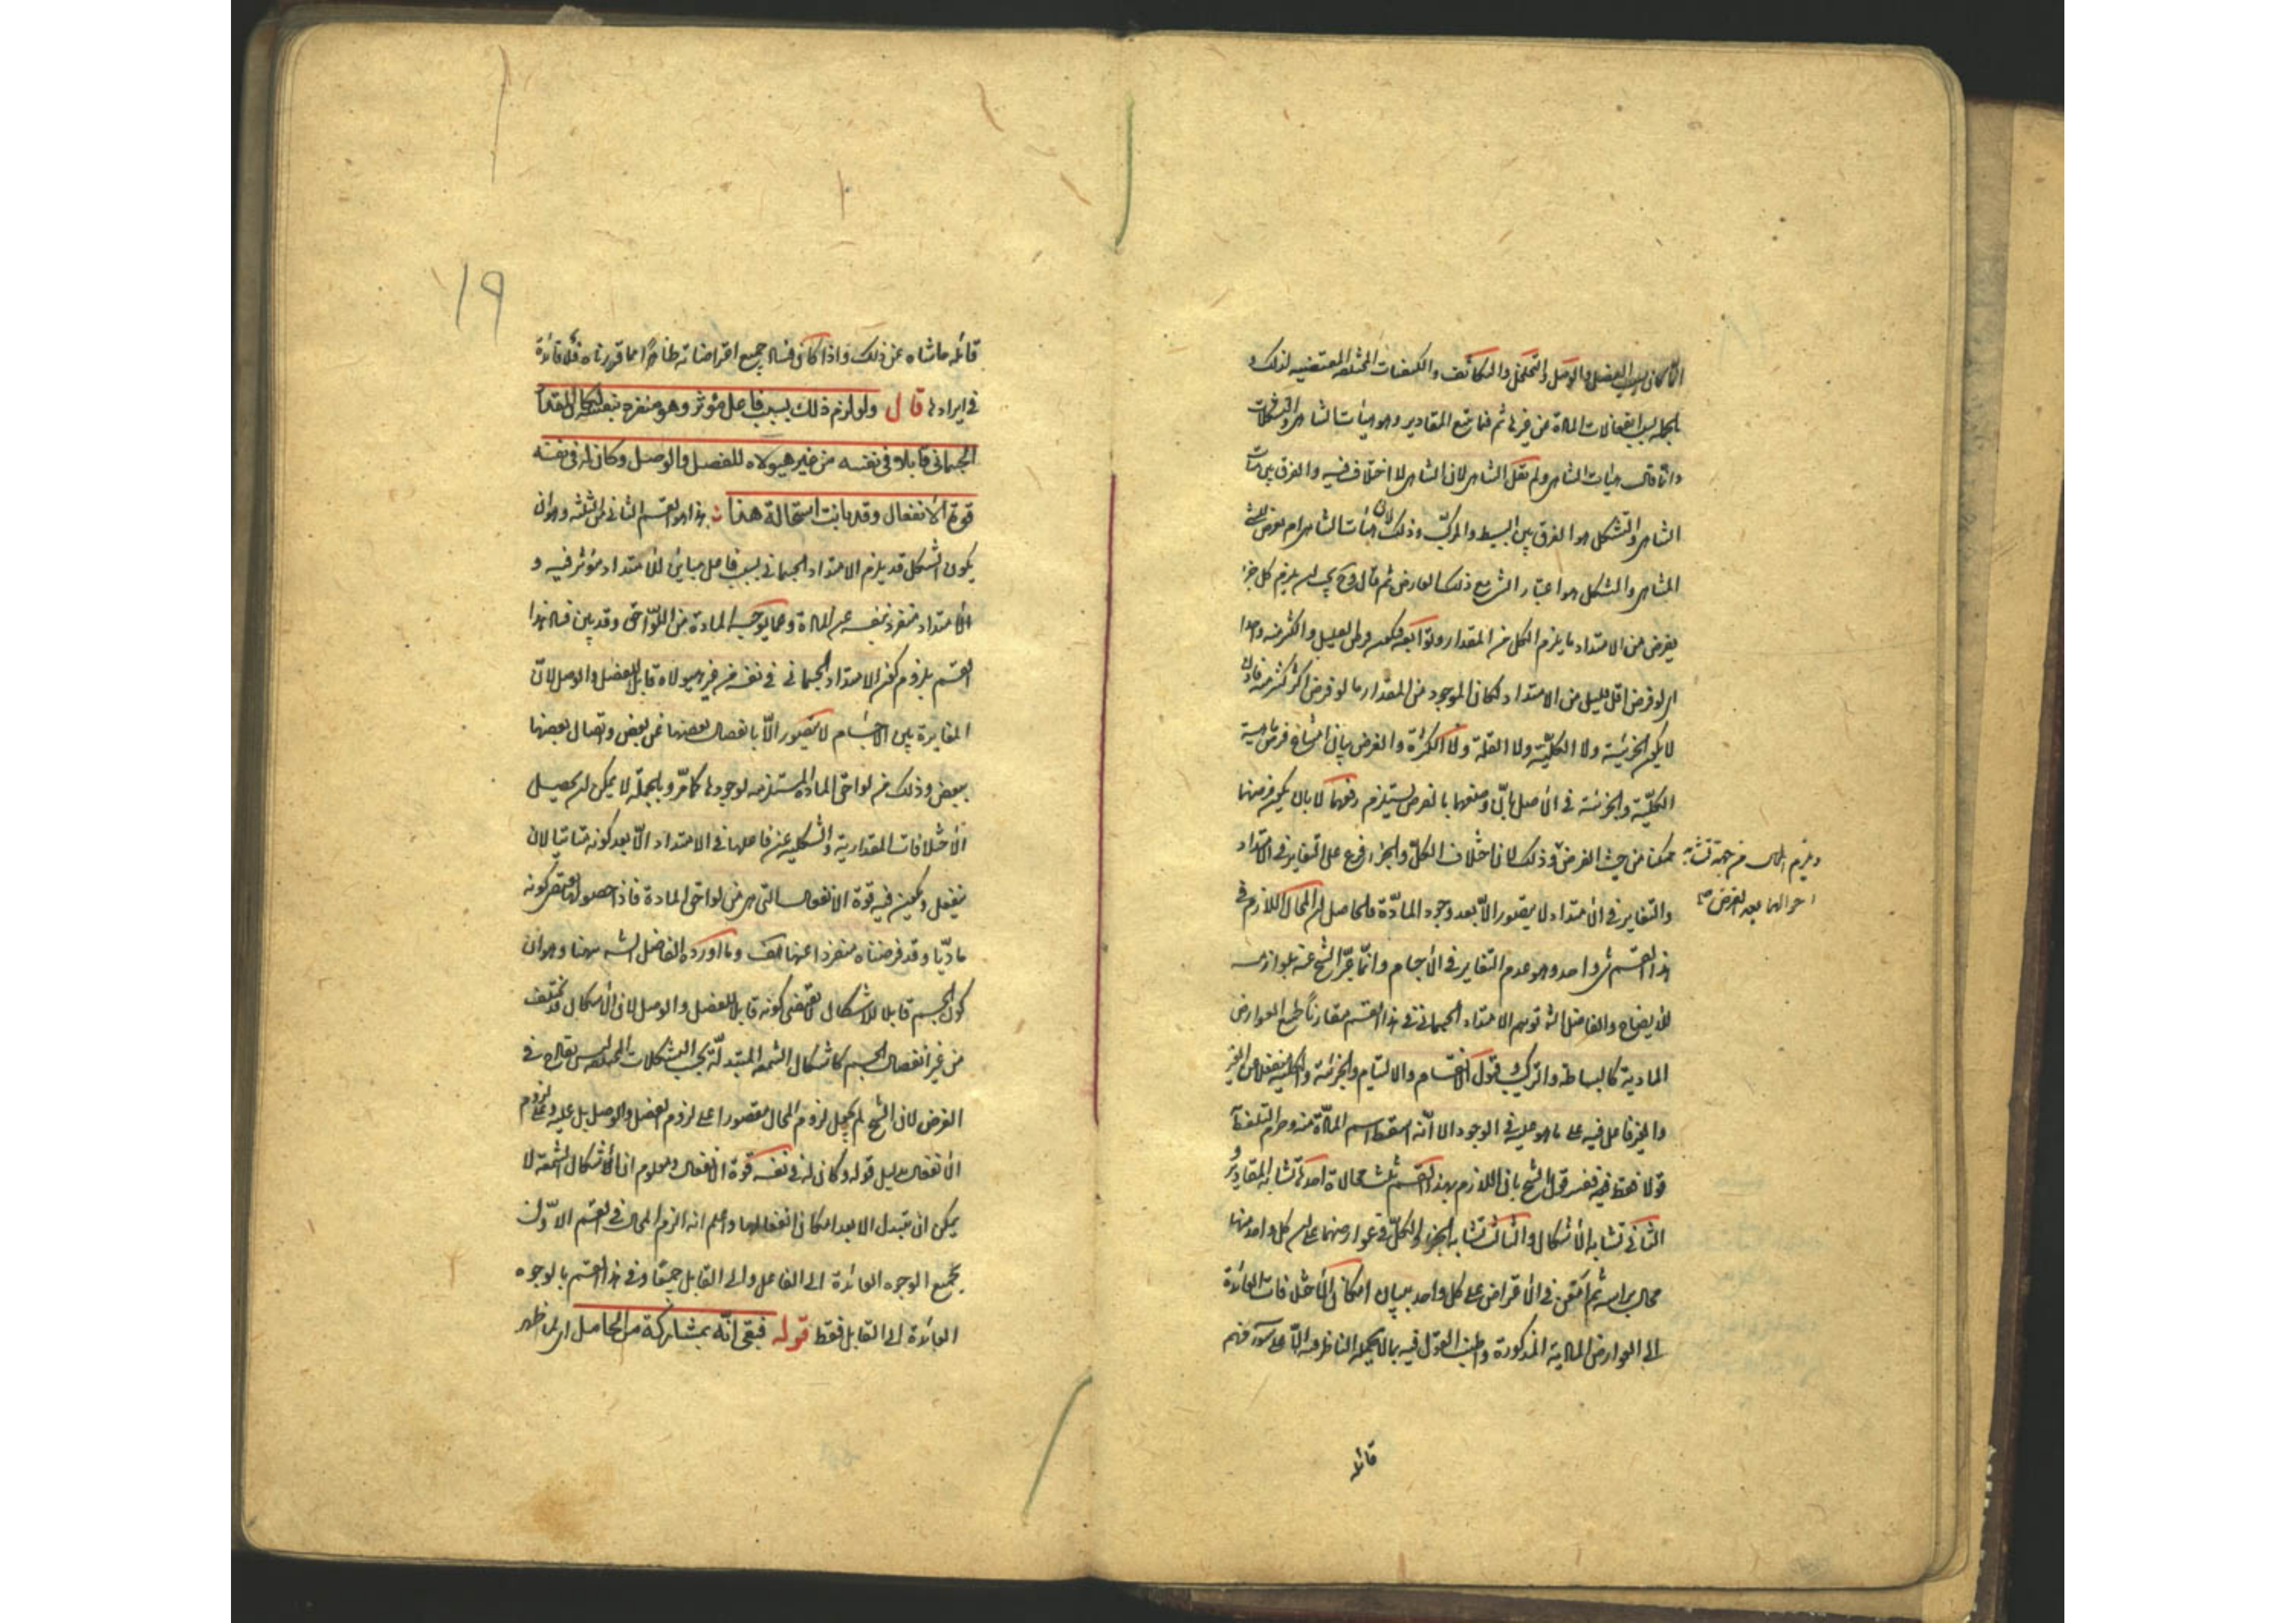 الا كان بسبب الفصل والوصل والتخلخل والتكاثف والكيفيات المختلفة المقتضية لذلك و
بالجملة بسبب انفعالات المادة عن غيرها ثم قال مع المقادير وهيئات التناهي والتشكلات
وانما قال هيئات التناهي ولم يقل التناهي لان التناهي لا اختلاف فيه والفرق بين هيئات
التناهي والتشكل هو الفرق بين البسيط والمركب وذلك لان هيئات التناهي امر يعرض للشئ
المتناهي والتشكل هو اعتبار الشئ مع ذلك العارض ثم قال وح يجب ان يلزم كل جزء
يفرض من الامتداد ما يلزم الكل من المقدار
اى لو فرض اقل قليل من الامتداد لكان الموجود من المقدار ما لو فرض اكثر كثير منه فاذن
لا يكون الجزئية ولا الكلية ولا القلة ولا الكثرة والغرض بيان امتناع فرض
الكلية والجزئية في الاصل بان وضعهما بالفرض يستلزم رفعهما لا بان يكون فرضهما
ممكنا من حيث الفرض وذلك لان اختلاف الكل والجزء فرع على التغاير في الامتداد
ويلزم المحال من جهة تشابه
احوالهما بعد الفرض صح
والتغاير في الامتداد لا يتصور الا بعد وجود المادة فالحاصل ان المحال اللازم في
هذا القسم شئ واحد وهو عدم التغاير في الاجسام وانما عبر الشيخ عنه بلوازمه
للايضاح والفاضل الشارح توهم الامتداد الجسماني في هذا القسم مقارنا لجميع العوارض
المادية كالبساطة والتركيب وقبول الانقسام والالتيام والجزئية والكلية منفعلا عن الغير
والغير فاعل فيه على ما هو عليه في الوجود الا انه اسقط اسم المادة منه وحرم التلفظ بها
قولا فقط ففسر قول الشيخ بان اللازم بهذا القسم ثلث محالات احدها تشابه المقادير و
الثاني تشابه الاشكال والثالث تشابه الجزء والكل في عوارضهما على ان كل واحد منها
محال براسه ثم امعن في الاقراض على كل واحد ببيان امكان الاختلافات العائدة
الى العوارض المادية المذكورة واطنب القول فيه بما لا يحمله الناظر فيه الا على سوء فهم
قائله
قائله حاشاه عن ذلك واذا كان فساد جميع اقراضاته ظاهرا مما قررناه فلا فائدة
في ايرادها قال ولو لزم ذلك بسبب فاعل مؤثر وهو منفرد بنفسه لكان المقدار
الجسماني قابلا في نفسه من غير هيولاه للفصل والوصل وكان له في نفسه
قوة الانفعال وقد بانت استحالة هذا هذا هو القسم الثاني من الثلثة وهو ان
يكون الشكل قد يلزم الامتداد الجسماني بسبب فاعل مباين للامتداد مؤثر فيه و
الامتداد منفرد بنفسه عن المادة وعما يوجبه المادة من اللواحق وقد بين فساد هذا
القسم بلزوم كون الامتداد الجسماني في نفسه من غير هيولاه قابلا للفصل والوصل لان
المغايرة بين الاجسام لا يتصور الا بانفصال بعضها عن بعض واتصال بعضها
ببعض وذلك من لواحق المادة المستلزمه لوجودها كما مر وبالجملة لا يمكن ان يحصل
الاختلافات المقدارية والشكلية عن فاعلها في الامتداد الا بعد كونه متاتيا لان
ينفعل ويكون فيه قوة الانفعال التي هي من لواحق المادة فاذن حصولها يقتضي كونه
ماديا وقد فرضناه منفردا عنها هف وما اورده الفاضل الشارح ههنا وهو ان
كون الجسم قابلا للاشكال لا يقتضي كونه قابلا للفصل والوصل لان الاشكال قد تختلف
من غير انفصال الجسم كاشكال الشمعة المتبدلة بحسب التشكلات المختلفة ليس بقادح في
الغرض لان الشيخ لم يجعل لزوم المحال مقصورا على لزوم الفصل والوصل بل عليه وعلى لزوم
الانفعال بدليل قوله وكان له في نفسه قوة الانفعال ومعلوم ان اشكال الشمعة لا
يمكن ان تتبدل الا بعد امكان انفعالها واعلم انه الزم المحال في القسم الاول
بجميع الوجوه العائدة الى الفاعل والى القابل جميعا وفي هذا القسم بالوجوه
العائدة الى القابل فقط قوله فبقي انه بمشاركة من الحامل اى لما ظهر
١٩